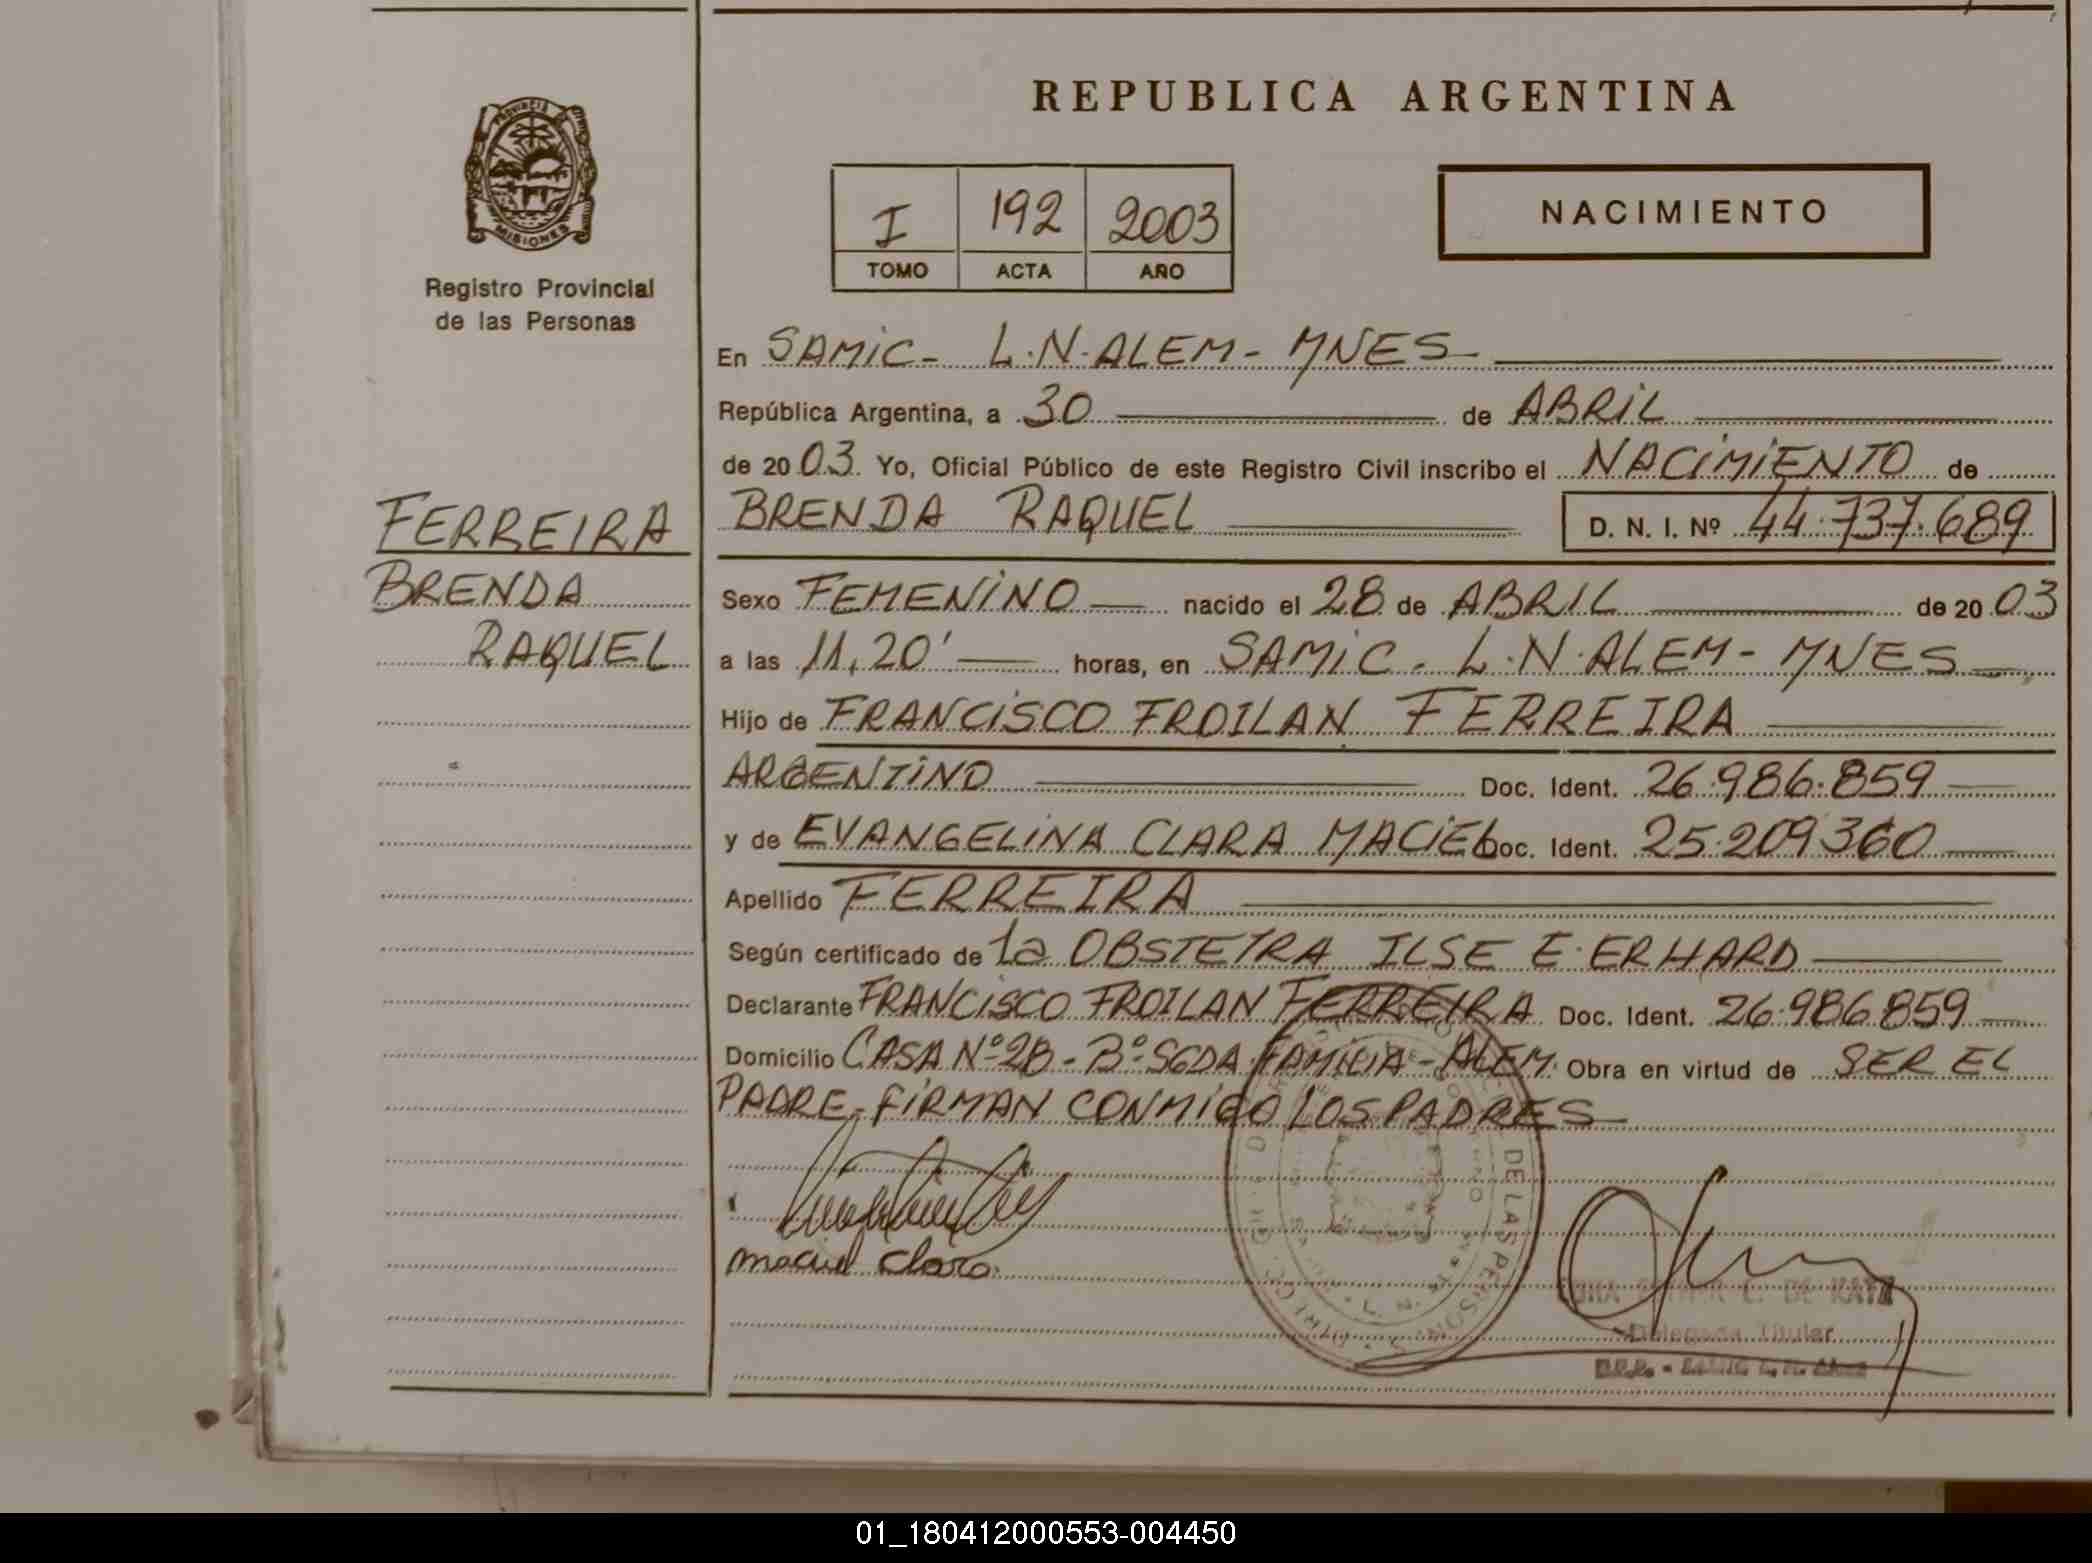 REPUBLICA ARGENTINA
PROVINCIA DE
MISIONES
Registro Provincial
de las Personas
I 192 2003
TOMO ACTA AÑO
NACIMIENTO
En SAMIC- L.N.ALEM- MNES
República Argentina, a 30 de ABRIL
de 2003. Yo, Oficial Público de este Registro Civil inscribo el NACIMIENTO de
FERREIRA
BRENDA
RAQUEL
BRENDA RAQUEL D. N. I. Nº 44.737.689
Sexo FEMENINO nacido el 28 de ABRIL de 2003
a las 11,20' horas, en SAMIC. L.N.ALEM- MNES
Hijo de FRANCISCO FROILAN FERREIRA
ARGENTINO Doc. Ident. 26.986.859
y de EVANGELINA CLARA MACIEL Doc. Ident. 25.209360
Apellido FERREIRA
Según certificado de la OBSTETRA ILSE E. ERHARD
Declarante FRANCISCO FROILAN FERREIRA Doc. Ident. 26.986859
Domicilio CASA Nº 2B - Bº SGDA. FAMILIA - ALEM. Obra en virtud de SER EL
PADRE. FIRMAN CONMIGO LOS PADRES
Maciel Clara
DE LAS PERSONAS
DE KATZ
Delegada Titular
01_180412000553-004450